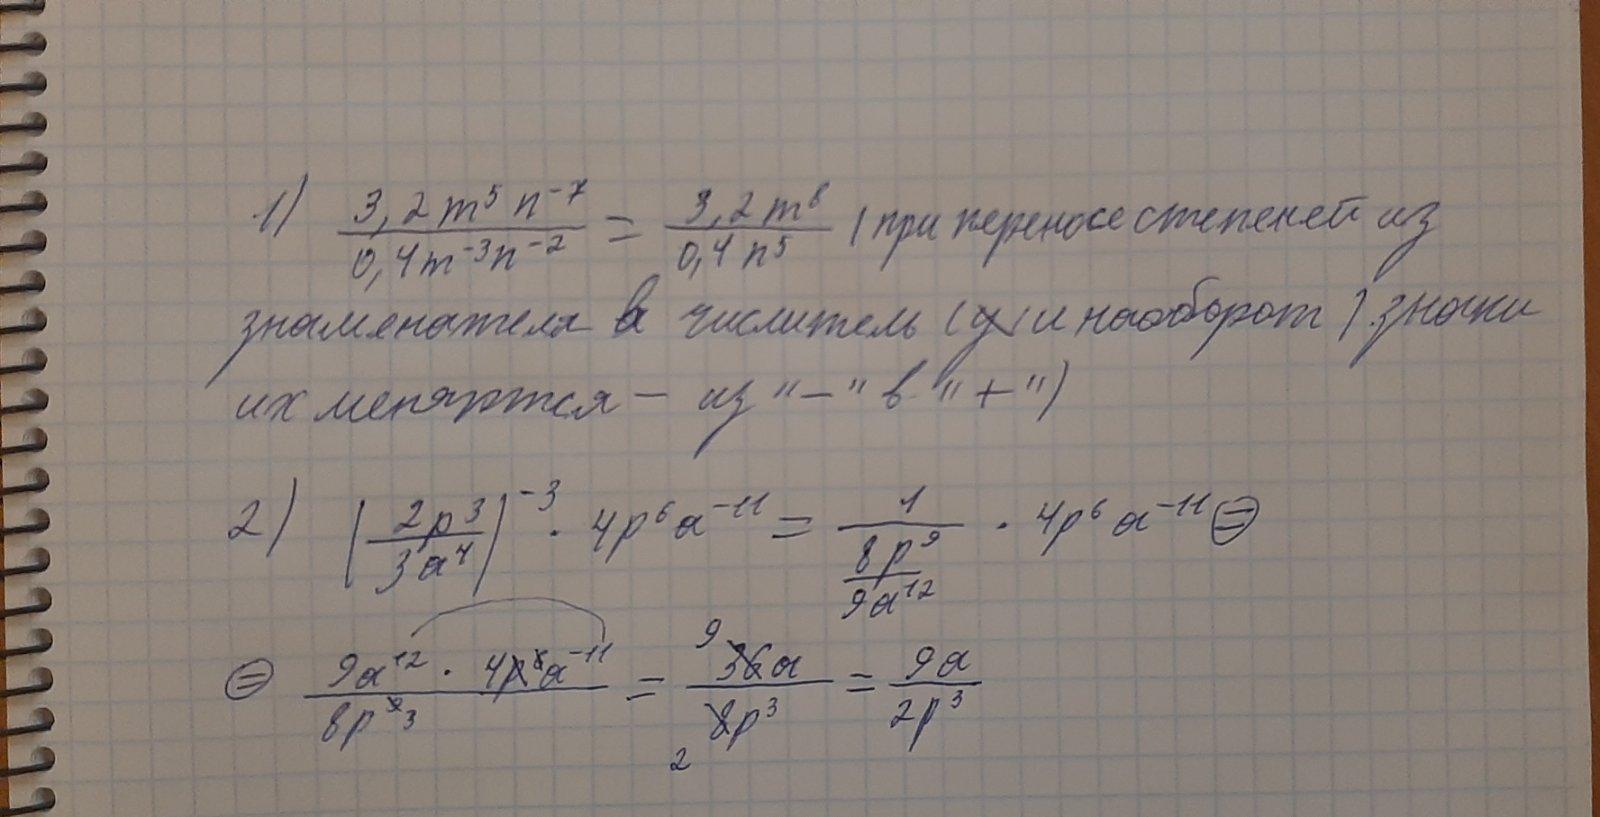 1) \frac{3,2m^5n^{-7}}{0,4m^{-3}n^{-2}} = \frac{3,2m^8}{0,4n^5} (при переносе степеней из
знаменателя в числитель (и наоборот) значки
их меняются – из "–" в "+")
2) (\frac{2p^3}{3a^4})^{-3} · 4p^6a^{-11} = \frac{1}{\frac{8p^9}{9a^{12}}} · 4p^6a^{-11} ⊜
⊜ \frac{9a^{12} · 4p^6a^{-11}}{8p^{9 3}} = \frac{36a}{8p^3} = \frac{9a}{2p^3}